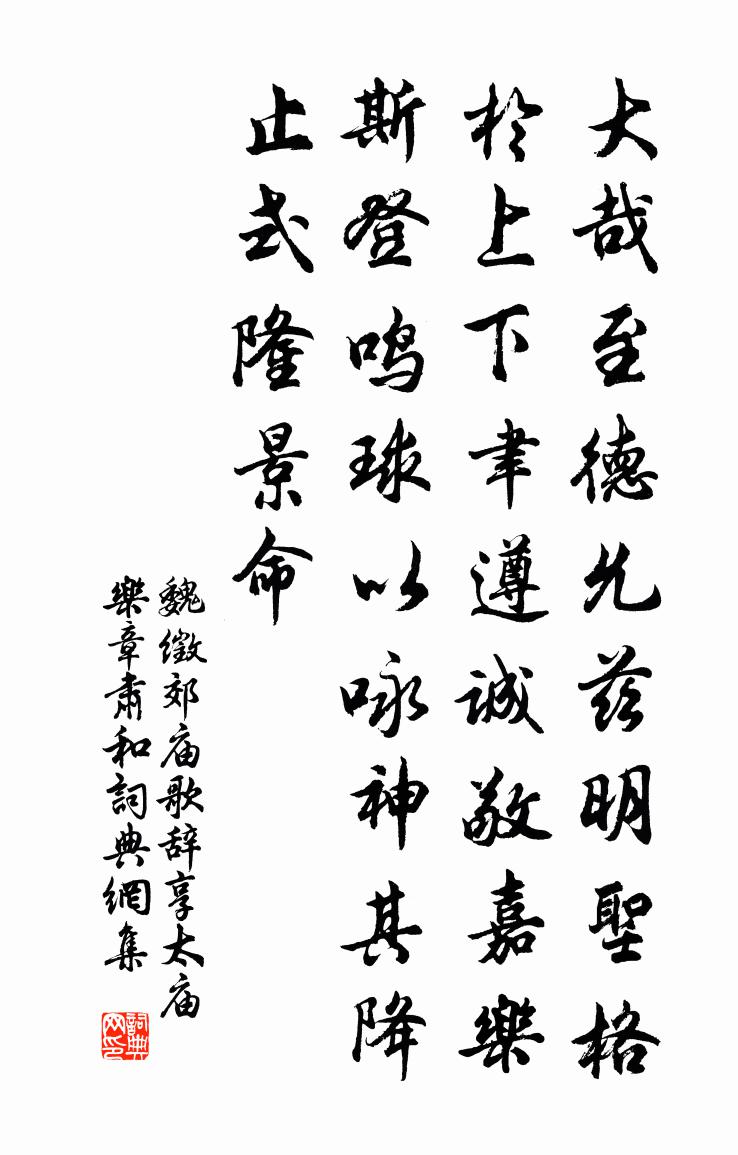 大哉至德允兹明聖格
於上下聿遵誠敬嘉樂
斯登鳴球以咏神其降
止式隆景命
魏徵郊庙歌辞享太庙
樂章肅和詞典網集
詞典网印